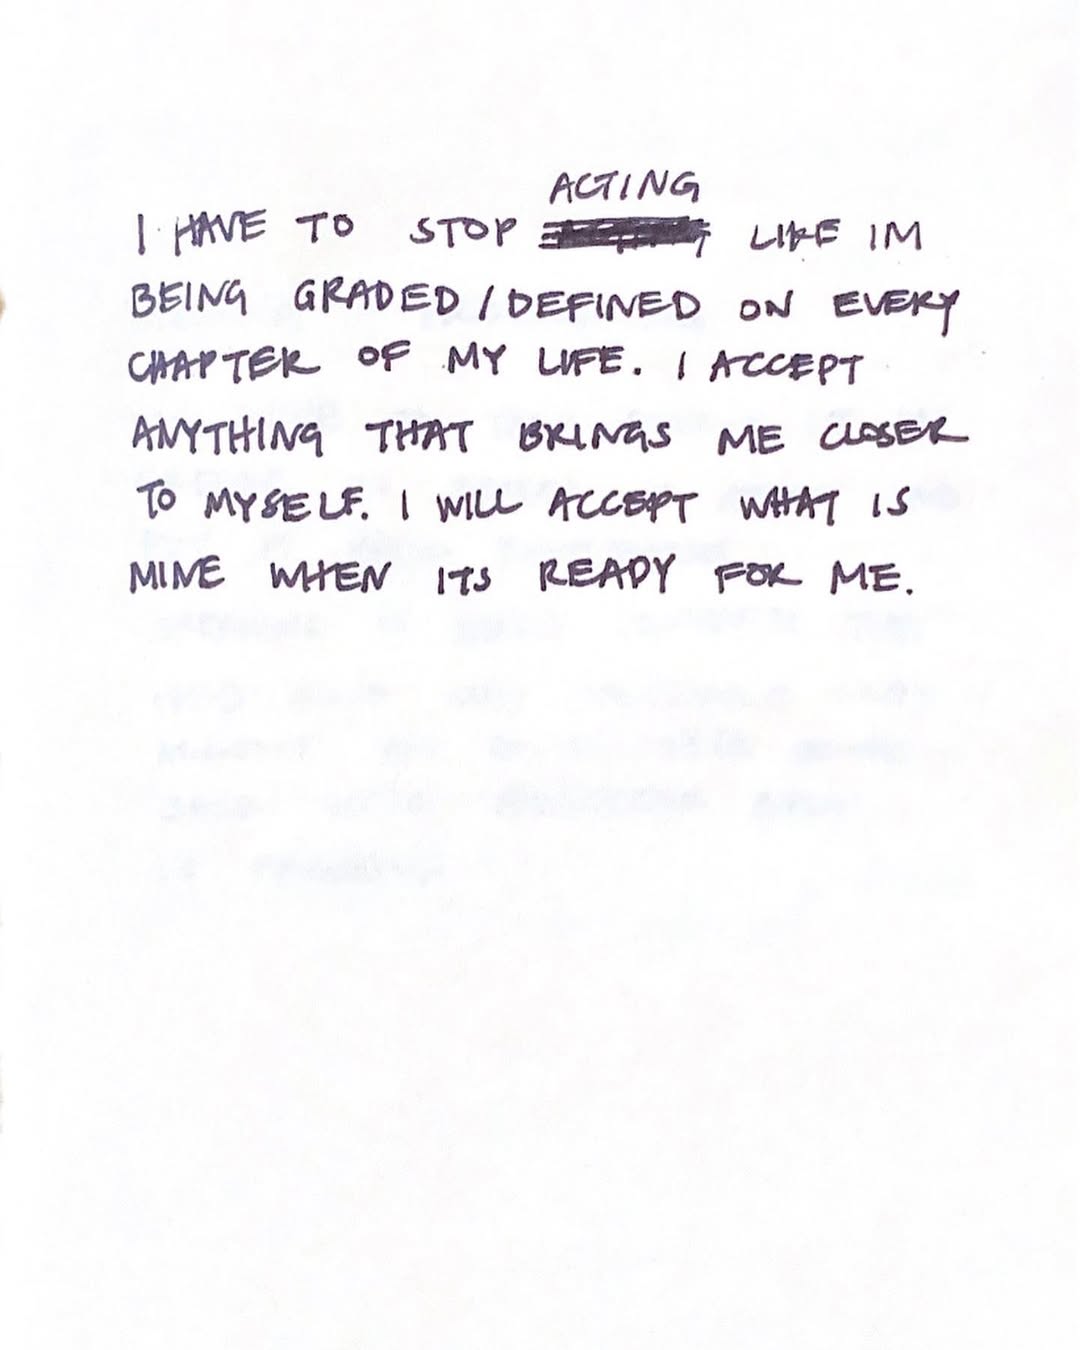 ACTING
I HAVE TO STOP LIKE IM
BEING GRADED/DEFINED ON EVERY
CHAPTER OF MY LIFE. I ACCEPT
ANYTHING THAT BRINGS ME CLOSER
TO MYSELF. I WILL ACCEPT WHAT IS
MINE WHEN ITS READY FOR ME.